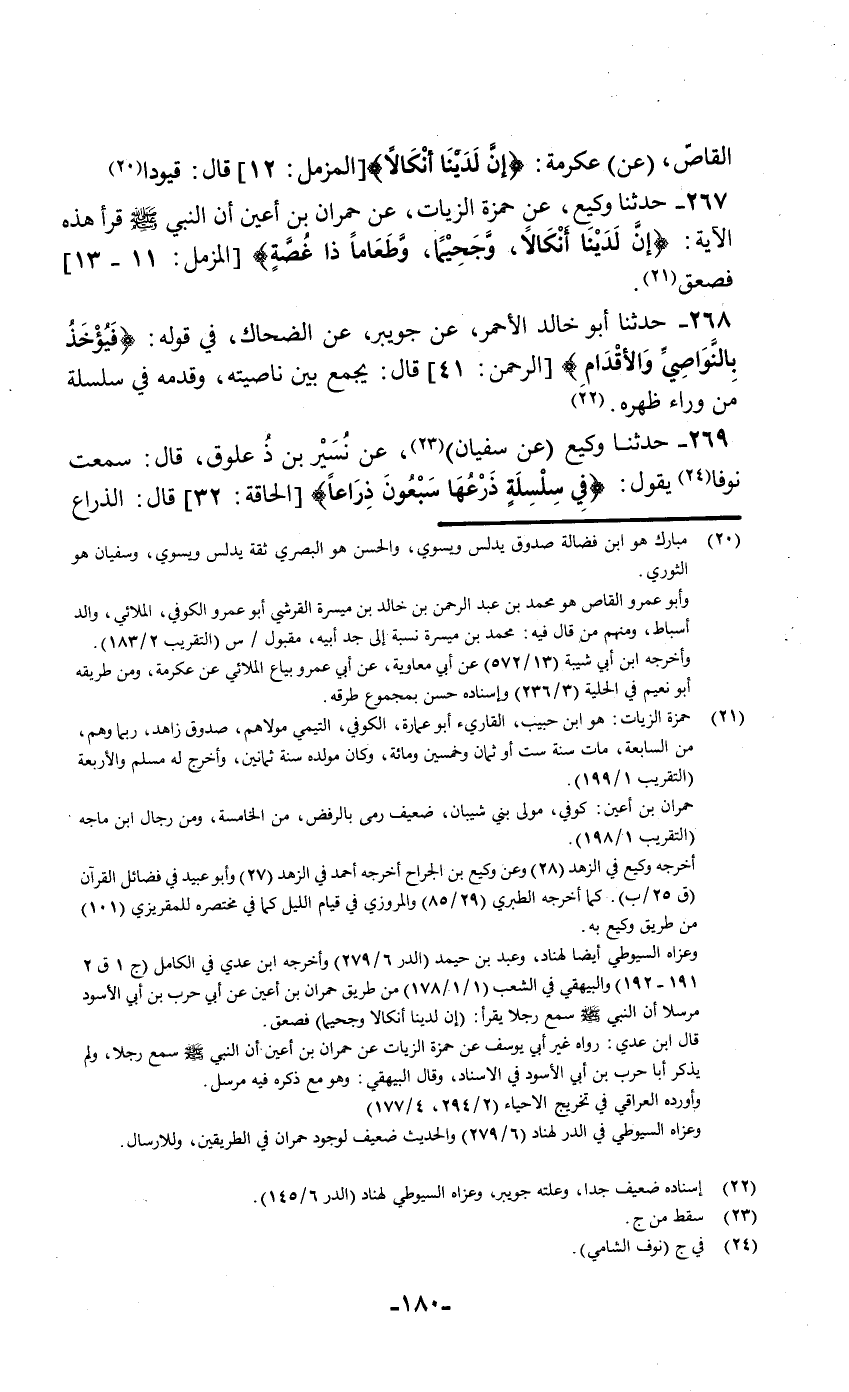 القاصّ، (عن) عكرمة: ﴿إنَّ لَدَيْنَا أَنْكَالًا﴾[المزمل: ١٢] قال: قيودا(٢٠)
٢٦٧ـ حدثنا وكيع، عن حمزة الزيات، عن حمران بن أعين أن النبي ﷺ قرأ هذه
الآية: ﴿إنَّ لَدَيْنَا أَنْكَالًا، وَّجَحِيْمًا، وَّطَعَاماً ذا غُصَّةٍ﴾ [المزمل: ١١ ـ ١٣]
فصعق(٢١).
٢٦٨ـ حدثنا أبو خالد الأحمر، عن جويبر، عن الضحاك، في قوله: ﴿فَيُؤْخَذُ
بِالنَّوَاصِيِّ وَالأقْدَامِ﴾ [الرحمن: ٤١] قال: يجمع بين ناصيته، وقدمه في سلسلة
من وراء ظهره. (٢٢)
٢٦٩ـ حدثنا وكيع (عن سفيان)(٢٣)، عن نُسَيْر بن ذُ علوق، قال: سمعت
نوفا(٢٤) يقول: ﴿فِي سِلْسِلَةٍ ذَرْعُهَا سَبْعُونَ ذِرَاعاً﴾ [الحاقة: ٣٢] قال: الذراع
(٢٠) مبارك هو ابن فضالة صدوق يدلس ويسوي، والحسن هو البصري ثقة يدلس ويسوي، وسفيان هو
الثوري.
وأبو عمرو القاص هو محمد بن عبد الرحمن بن خالد بن ميسرة القرشي أبو عمرو الكوفي، الملائي، والد
أسباط، ومنهم من قال فيه: محمد بن ميسرة نسبة إلى جد أبيه، مقبول / س (التقريب ١٨٣/٢).
وأخرجه ابن أبي شيبة (٥٧٢/١٣) عن أبي معاوية، عن أبي عمرو بياع الملائي عن عكرمة، ومن طريقه
أبو نعيم في الحلية (٢٣٦/٣) وإسناده حسن بمجموع طرقه.
(٢١) حمزة الزيات: هو ابن حبيب، القاريء أبو عمارة، الكوفي، التيمي مولاهم، صدوق زاهد، ربما وهم،
من السابعة، مات سنة ست أو ثمان وخمسين ومائة، وكان مولده سنة ثمانين، وأخرج له مسلم والأربعة
(التقريب ١٩٩/١).
حمران بن أعين: كوفي، مولى بني شيبان، ضعيف رمى بالرفض، من الخامسة، ومن رجال ابن ماجه
(التقريب ١٩٨/١).
أخرجه وكيع في الزهد (٢٨) وعن وكيع بن الجراح أخرجه أحمد في الزهد (٢٧) وأبو عبيد في فضائل القرآن
(ق ٢٥/ب). كما أخرجه الطبري (٨٥/٢٩) والمروزي في قيام الليل كما في مختصره للمقريزي (١٠١)
من طريق وكيع به.
وعزاه السيوطي أيضا لهناد، وعبد بن حيمد (الدر ٢٧٩/٦) وأخرجه ابن عدي في الكامل (ج ١ ق ٢
١٩١ ـ ١٩٢) والبيهقي في الشعب (١٧٨/١/١) من طريق حمران بن أعين عن أبي حرب بن أبي الأسود
مرسلا أن النبي ﷺ سمع رجلا يقرأ: (إن لدينا أنكالا وجحيما) فصعق.
قال ابن عدي: رواه غير أبي يوسف عن حمزة الزيات عن حمران بن أعين أن النبي ﷺ سمع رجلا، ولم
يذكر أبا حرب بن أبي الأسود في الاسناد، وقال البيهقي: وهو مع ذكره فيه مرسل.
وأورده العراقي في تخريج الاحياء (٢٩٤/٢، ١٧٧/٤)
وعزاه السيوطي في الدر لهناد (٢٧٩/٦) والحديث ضعيف لوجود حمران في الطريقين، وللارسال.
(٢٢) إسناده ضعيف جدا، وعلته جويبر، وعزاه السيوطي لهناد (الدر ١٤٥/٦).
(٢٣) سقط من ج.
(٢٤) في ج (نوف الشامي).
ـ١٨٠ـ